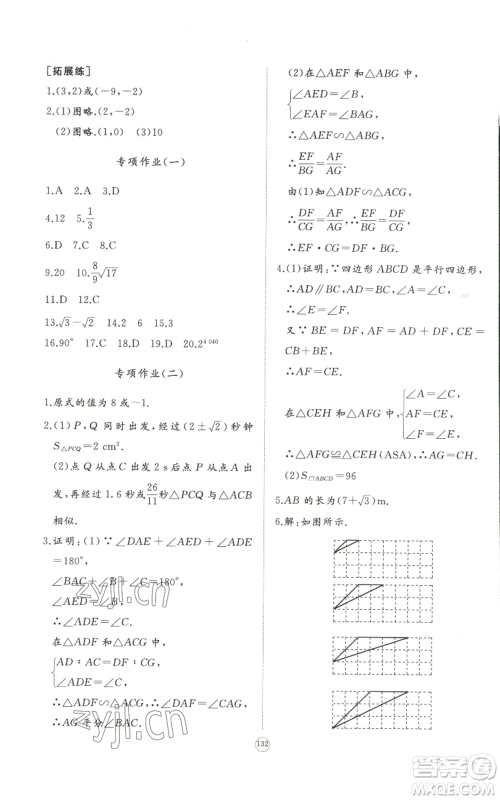 [拓展练]
1.(3,2)或(-9,-2)
2.(1)图略.(2,-2)
(2)图略.(1,0) (3)10
专项作业(一)
1.A 2.A 3.D
4.12 5.1/3
6.D 7.C 8.D
9.20 10.8/9√17
11.D 12.D
13.√3-√2 14.2 6 15.3
16.90° 17.B 18.D 19.D 20.2^4 040
专项作业(二)
1.原式的值为8或-1.
2.(1)P,Q同时出发,经过(2±√2)秒钟
S△PCQ=2 cm².
(2)点Q从点C出发2s后点P从点A出
发,再经过1.6秒或26/11秒△PCQ与△ABC
相似.
3.证明:(1)∵∠DAE+∠AED+∠ADE
=180°,
∠BAC+∠B+∠C=180°,
∠AED=∠B,
∴∠ADE=∠C.
在△ADF和△ACG中,
{AD∶AC=DF∶CG,
∠ADE=∠C,
∴△ADF∽△ACG.∴∠DAF=∠CAG.
∴AG平分∠BAC.
(2)在△AEF和△ABG中,
{∠AED=∠B,
∠EAF=∠BAG,
∴△AEF∽△ABG.
∴EF/BG=AF/AG.
由(1)知△ADF∽△ACG,
∴DF/CG=AF/AG.∴EF/BG=DF/CG.
∴EF·CG=DF·BG.
4.(1)证明:∵四边形ABCD是平行四边形,
∴AD∥BC,AD=BC,∠A=∠C.
∴∠F=∠E.
又∵BE=DH,∴AD+DH=CB+BE.
∴AF=CE.
在△CEH和△AFG中,{∠A=∠C,
AF=CE,
∠F=∠E,
∴△AFG≌△CEH(ASA).
(2)S▱ABCD=96
5.AB的长为(7+√3)m.
6.解:如图所示.
132
zyjl.cn
zyjl.cn